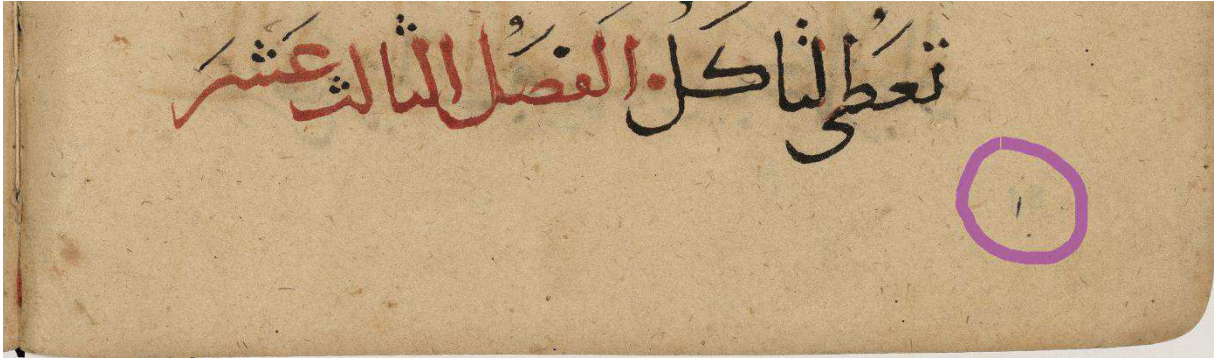 تعطى لتاكل الفصل الثالث عشر